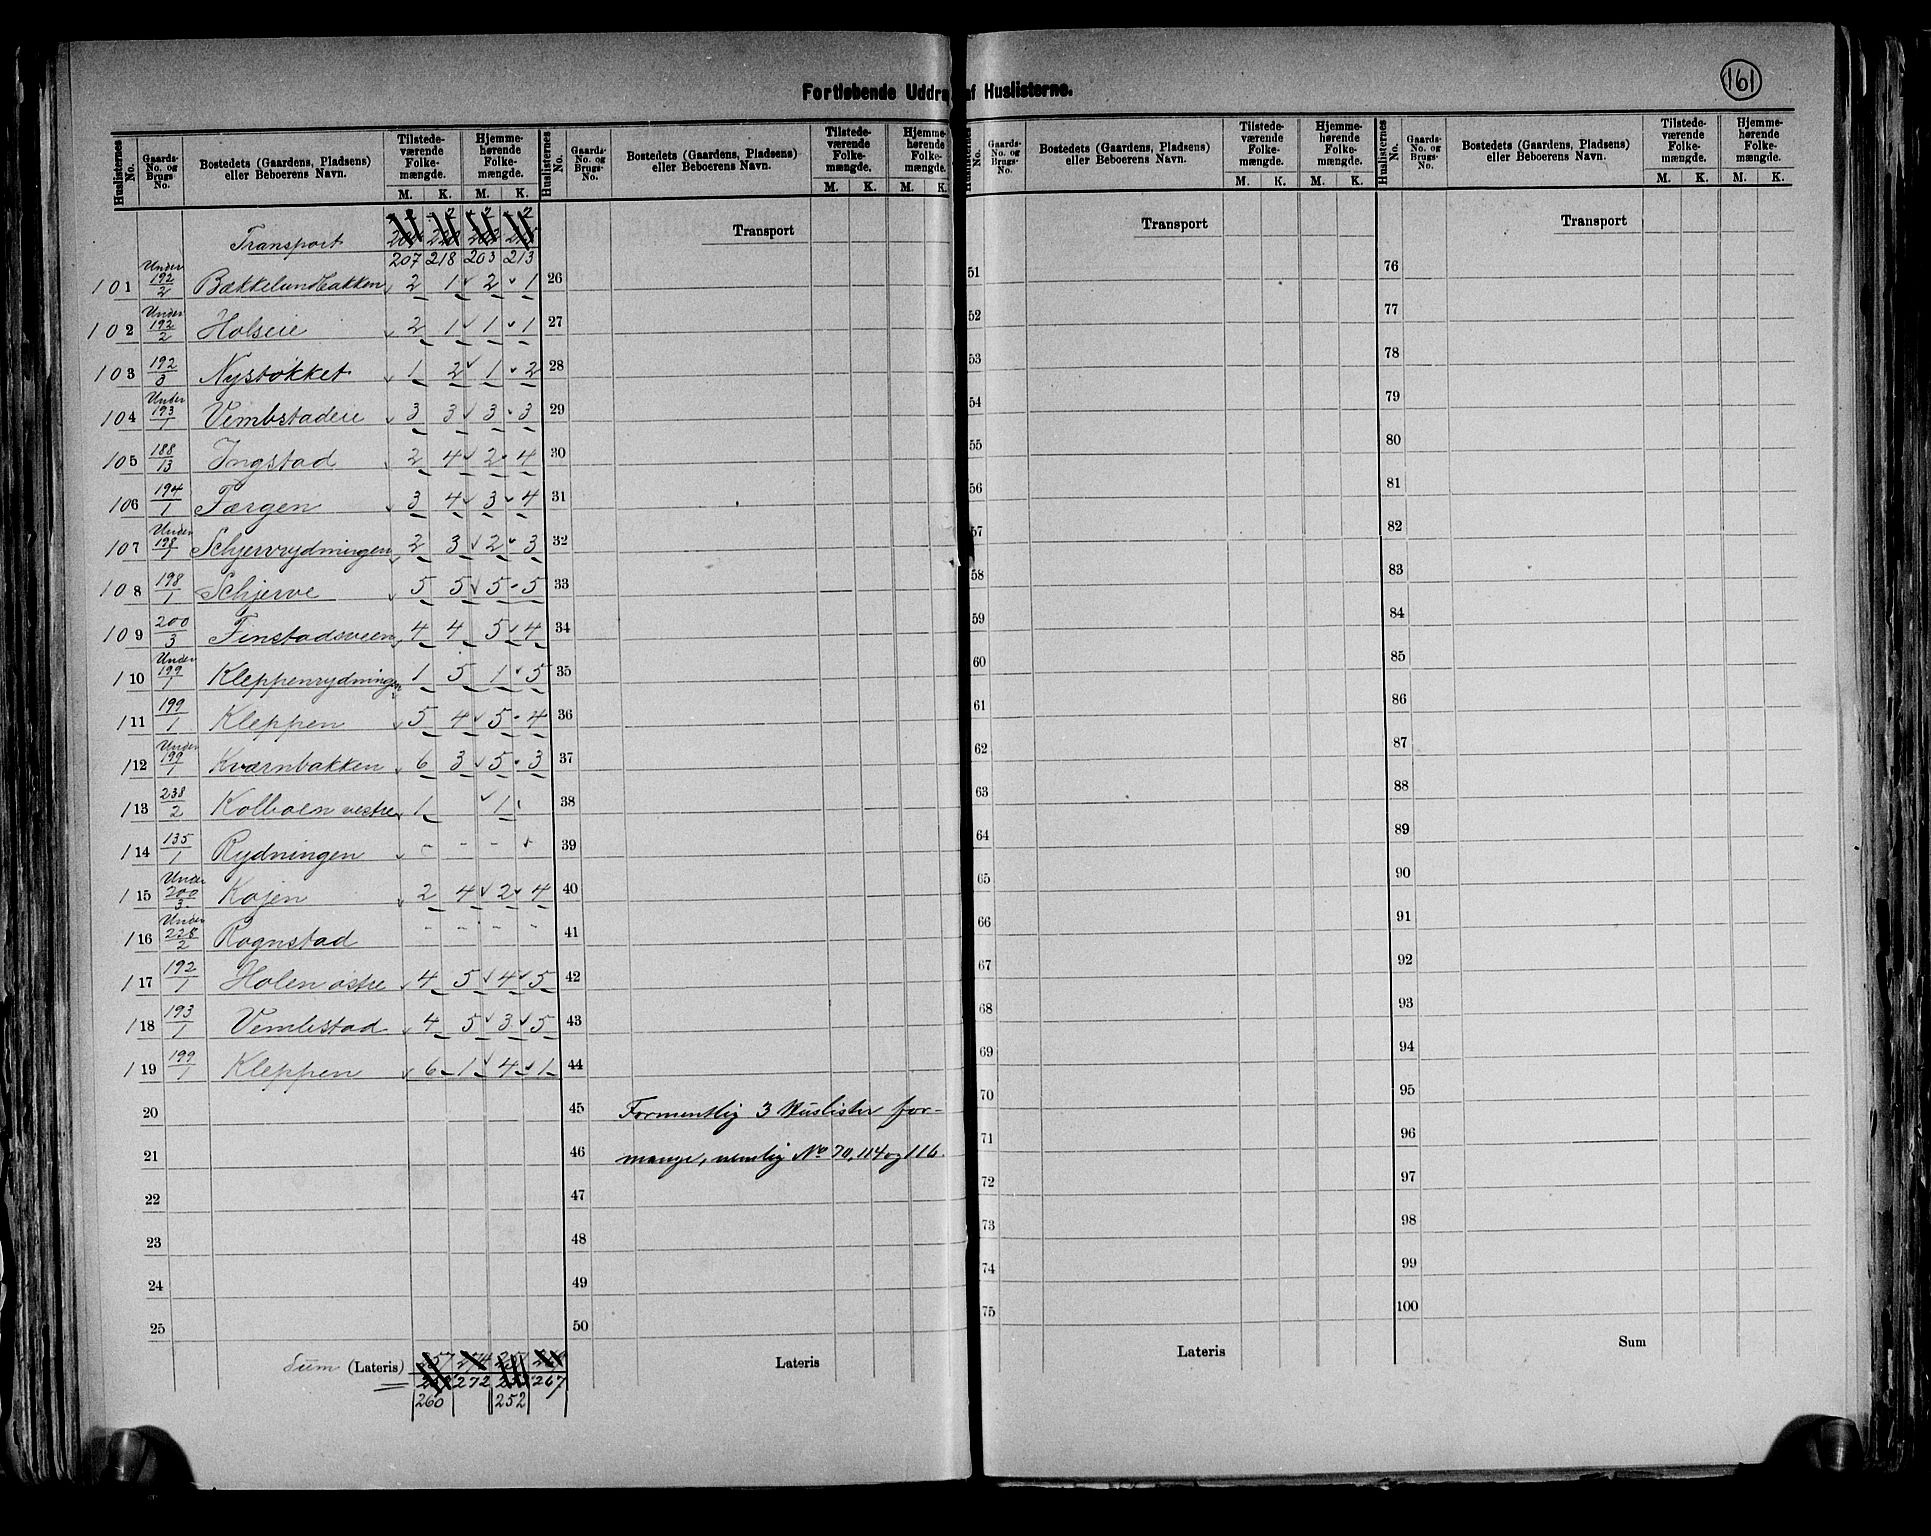 161
Fortløbende Uddra af Huslisterne.
Huslisternes No. Gaards-No. og Brugs-No. Bostedets (Gaardens, Pladsens) eller Beboerens Navn. Tilstedeværende Folkemængde. M. K. Hjemmehørende Folkemængde. M. K.
Huslisternes No. Gaards-No. og Brugs-No. Bostedets (Gaardens, Pladsens) eller Beboerens Navn. Tilstedeværende Folkemængde. M. K. Hjemmehørende Folkemængde. M. K.
Huslisternes No. Gaards-No. og Brugs-No. Bostedets (Gaardens, Pladsens) eller Beboerens Navn. Tilstedeværende Folkemængde. M. K. Hjemmehørende Folkemængde. M. K.
Huslisternes No. Gaards-No. og Brugs-No. Bostedets (Gaardens, Pladsens) eller Beboerens Navn. Tilstedeværende Folkemængde. M. K. Hjemmehørende Folkemængde. M. K.
Transport
207 218 203 213
101 Under 192/2 Bækkelundbakken 2 1 2 1
102 Under 192/2 Holseie 2 1 1 1
103 192/3 Nystøkket 1 2 1 2
104 Under 193/1 Vembstadeie 3 3 3 3
105 188/13 Ingstad 2 4 2 4
106 194/1 Færgen 3 4 3 4
107 Under 198/1 Schjerverydningen 2 3 2 3
108 198/1 Schjerve 5 5 5 5
109 200/3 Finstadsveen 4 4 5 4
110 Under 199/1 Kleppenrydningen 1 5 1 5
111 199/1 Kleppen 5 4 5 4
112 Under 199/1 Kværnbakken 6 3 5 3
113 238/2 Kolboen vestre 1 1
114 135/1 Rydningen - - -
115 Under 200/3 Kojen 2 4 2 4
116 Under 228/2 Rognstad - - - -
117 192/1 Holen østre 4 5 4 5
118 193/1 Vembstad 4 5 3 5
119 199/1 Kleppen 6 1 4 1
20
21
22
23
24
25
Sum (Lateris) 257 274 251
272 267
260 252
Transport
26
27
28
29
30
31
32
33
34
35
36
37
38
39
40
41
42
43
44
45 Formentlig 3 Huslister for-
46 mange, nemlig No 70, 114 og 116.
47
48
49
50
Lateris
Transport
51
52
53
54
55
56
57
58
59
60
61
62
63
64
65
66
67
68
69
70
71
72
73
74
75
Lateris
Transport
76
77
78
79
80
81
82
83
84
85
86
87
88
89
90
91
92
93
94
95
96
97
98
99
100
Sum